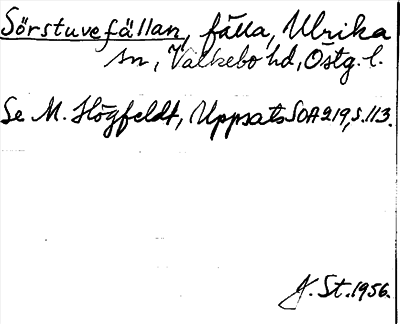 Sörstuvefällan, fälla, Ulrika
sn, Valkebo hd, Östg. l.
Se M. Högfeldt, Uppsats SOA 219, s. 113.
J. St. 1956.